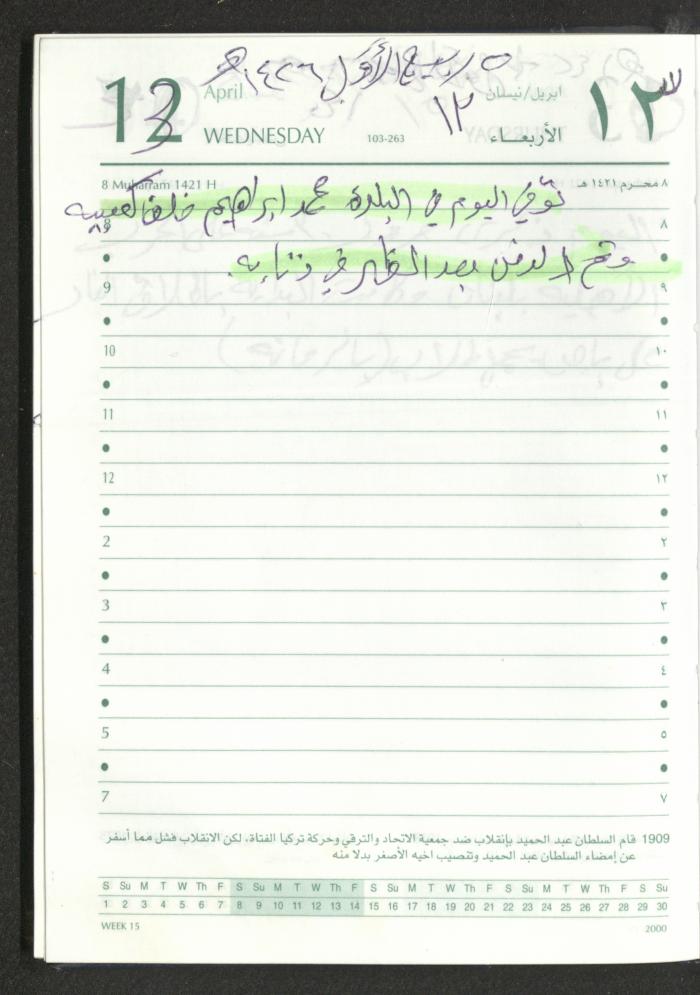 ٥ ربيع الأول ١٤٢٦ هـ
12 April ابريل/نيسان ١٢
13 ١٣
WEDNESDAY 103-263 الأربعـــاء
8 Muharram 1421 H ٨ محـرم ١٤٢١ هـ
توفي اليوم في البلدة محمد ابراهيم خلف
8 ٨
وتم الدفن بعد الظهر في
9 ٩
10 ١٠
11 ١١
12 ١٢
2 ٢
3 ٣
4 ٤
5 ٥
7 ٧
1909 قام السلطان عبد الحميد بإنقلاب ضد جمعية الاتحاد والترقي وحركة تركيا الفتاة، لكن الانقلاب فشل مما أسفر
عن إمضاء السلطان عبد الحميد وتنصيب اخيه الأصغر بدلا منه
S Su M T W Th F S Su M T W Th F S Su M T W Th F S Su M T W Th F S Su
1 2 3 4 5 6 7 8 9 10 11 12 13 14 15 16 17 18 19 20 21 22 23 24 25 26 27 28 29 30
WEEK 15 2000